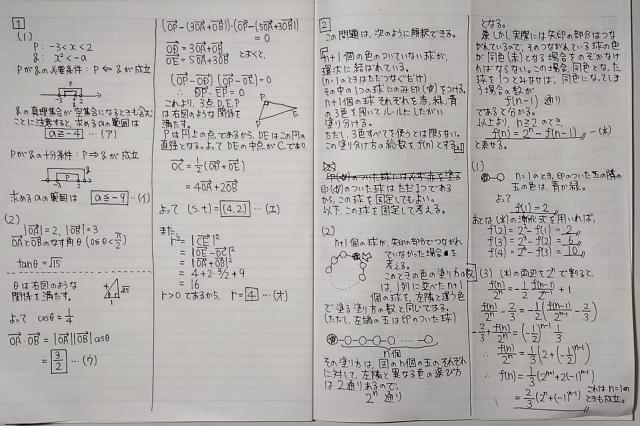 1
(1)
P: -3<x<2
q: x²<-a
Pがqの必要条件: P⇐qが成立
-3 2
qの真理集合が空集合になるときも含む
ことに注意すると、求めるaの範囲は
a≧-4 …(ア)
Pがqの十分条件: P⇒qが成立
-3 2
求めるaの範囲は a≦-9 …(イ)
(2)
|OA|=2, |OB|=3
OAとOBのなす角θ (0≦θ<π/2)
tanθ=√15
θは右図のような
関係を満たす。
4 √15
1
よって cosθ=1/4
OA・OB = |OA||OB|cosθ
= 3/2 …(ウ)
(OP-(3OA+OB))・(OP-(5OA+3OB))
=0
OD=3OA+OB
OE=5OA+3OB とおくと、
(OP-OD)・(OP-OE)=0
∴ DP・EP=0
これより、3点D,E,P
は右図のような関係を
満たす。
P
D
E
Pは円上の点であるから、DEはこの円の
直径となる。よってDEの中点がCであり、
OC=1/2(OD+OE)
=4OA+2OB
よって (s,t)=(4,2) …(エ)
また、
r²=|CE|²
=|OE-OC|²
=|OA+OB|²
=4+2・3/2+9
=16
r>0であるから、r=4 …(オ)
2
この問題は、次のように解釈できる。
n+1個の色のついていない球が、
環状に結ばれている。
(n=1のときはただつなぐだけ)
その中の1つの球にのみ印(めじるし)をつける。
n+1個の球それぞれを赤、緑、青
の3色を用いてルールにしたがい
塗り分ける。
ただし、3色すべてを使うとは限らない。
この塗り分け方の総数をf(n)とする。
印のついた球はただ1つである
から、この球を固定してもよい。
以下、この球を固定して考える。
(2)
n+1個の球が、矢印の部分でつながれ
ていなかった場合を
考える。
このときの色の塗り方の数
は、1列に並べたn+1
個の球を、左隣と違う色
で塗る塗り方の数と同じである。
(ただし、左端の玉は印のついた球)
n個
その塗り方は、図のn個の玉のそれぞれ
に対して、左隣と異なる色の選び方
は2通りあるので、
2ⁿ通り
となる。
しかし実際には矢印の部分はつな
がれているので、そのつながれている球の色
が同色(赤)となる場合をのぞかなけ
ればならない。この場合、同色となった
球を1つとみなせば、同色になってしま
う場合の数が
f(n-1)通り
であると分かる。
以上より、n≧2のとき、
f(n)=2ⁿ-f(n-1) …(※)
と表せる。
(1)
n=1のとき、印のついた玉の隣
の玉の色は、青か緑。
よって
f(1)=2
あとは(※)の漸化式を用いれば、
f(2)=2²-f(1)=2
f(3)=2³-f(2)=6
f(4)=2⁴-f(3)=10
(3) (※)の両辺を2ⁿで割ると、
f(n)/2ⁿ=-1/2 f(n-1)/2ⁿ⁻¹+1
f(n)/2ⁿ-2/3=-1/2(f(n-1)/2ⁿ⁻¹-2/3)
-2/3+f(n)/2ⁿ=(-1/2)ⁿ⁻¹・1/3
∴ f(n)/2ⁿ=1/3(2+(-1/2)ⁿ⁻¹)
∴ f(n)=1/3(2ⁿ⁺¹+2(-1)ⁿ⁻¹)
=2/3(2ⁿ+(-1)ⁿ⁻¹)
これはn=1の
ときも成立。